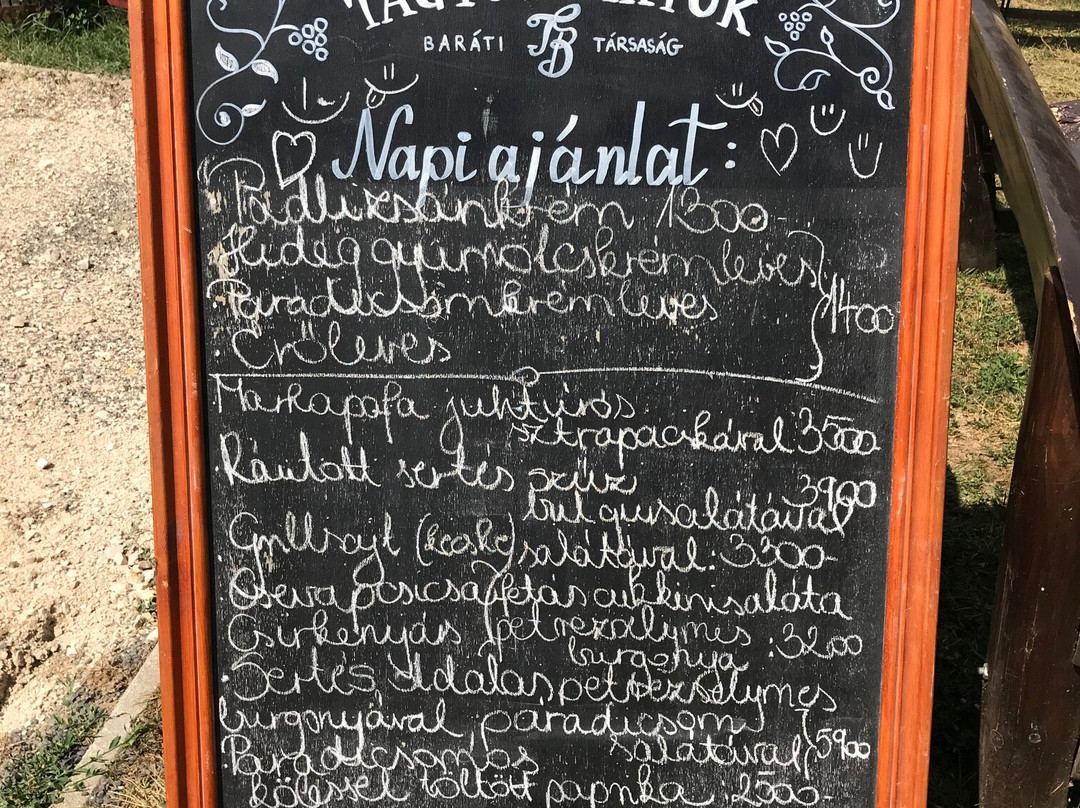 BARÁTI TB TÁRSASÁG
Napi ajánlat:
Padlizsánkrém 1300-
Hideg gyümölcskrémleves
Paradicsomkrémleves 1400
Erőleves
Markapofa juhtúrós
sztrapacskával 3500
Rántott sertés szűz 3900
bulgursalátával
Grillsajt (kecske) salátával: 3300-
csicsa, fetás cukkinisaláta
Csirkenyárs petrezselymes :3200
burgonya
Sertés dalas petrezselymes
burgonyával, paradicsom
salátával 5900
Paradicsomos
kölessel töltött paprika :2500-